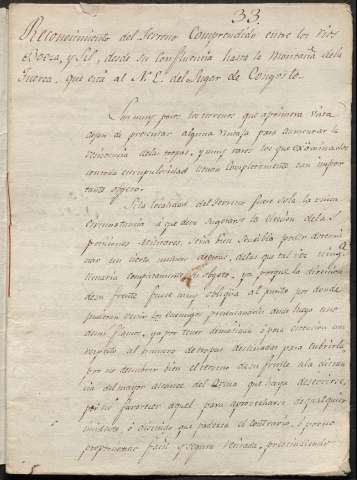 33.
Reconocimiento del Terreno Comprendido entre los rios
Boeza, y Sil, desde su Confluencia hasta la Montaña de la
Guerca, que está al N.E. del Lugar de Congosto.
Son muy raros los terrenos que a primera vista
dejan de procurar alguna ventaja para aumentar la
resistencia de las tropas, y muy raros los que examinados
con toda escrupulosidad llenan completamente tan impor
tante objeto.
Si la localidad del terreno fuese sola la unica
circunstancia á que deva sugetarse la eleccion de las
posiciones Militares, seria bien sensible poder determi
nar un cierto numero de pero, de las que tal vez ningª
llenaria completamente su objeto, ya porque la direccion
de su frente fuese muy obliqua al punto por donde
pudieran venir los enemigos presentandole desde luego uno
de sus flancos, ya por tener demasiada ó poca extension con
respecto al numero de tropas destinadas para cubrirla,
por no descubrir bien el terreno de su frente a la distan
cia del mayor alcance del Arma que haya de servirse,
por no favorecer aquel para aprovecharse de qualquier
incidente, ó descuido que padezca el contrario, ó porque
proporcionar facil y segura retirada, prescindiendo